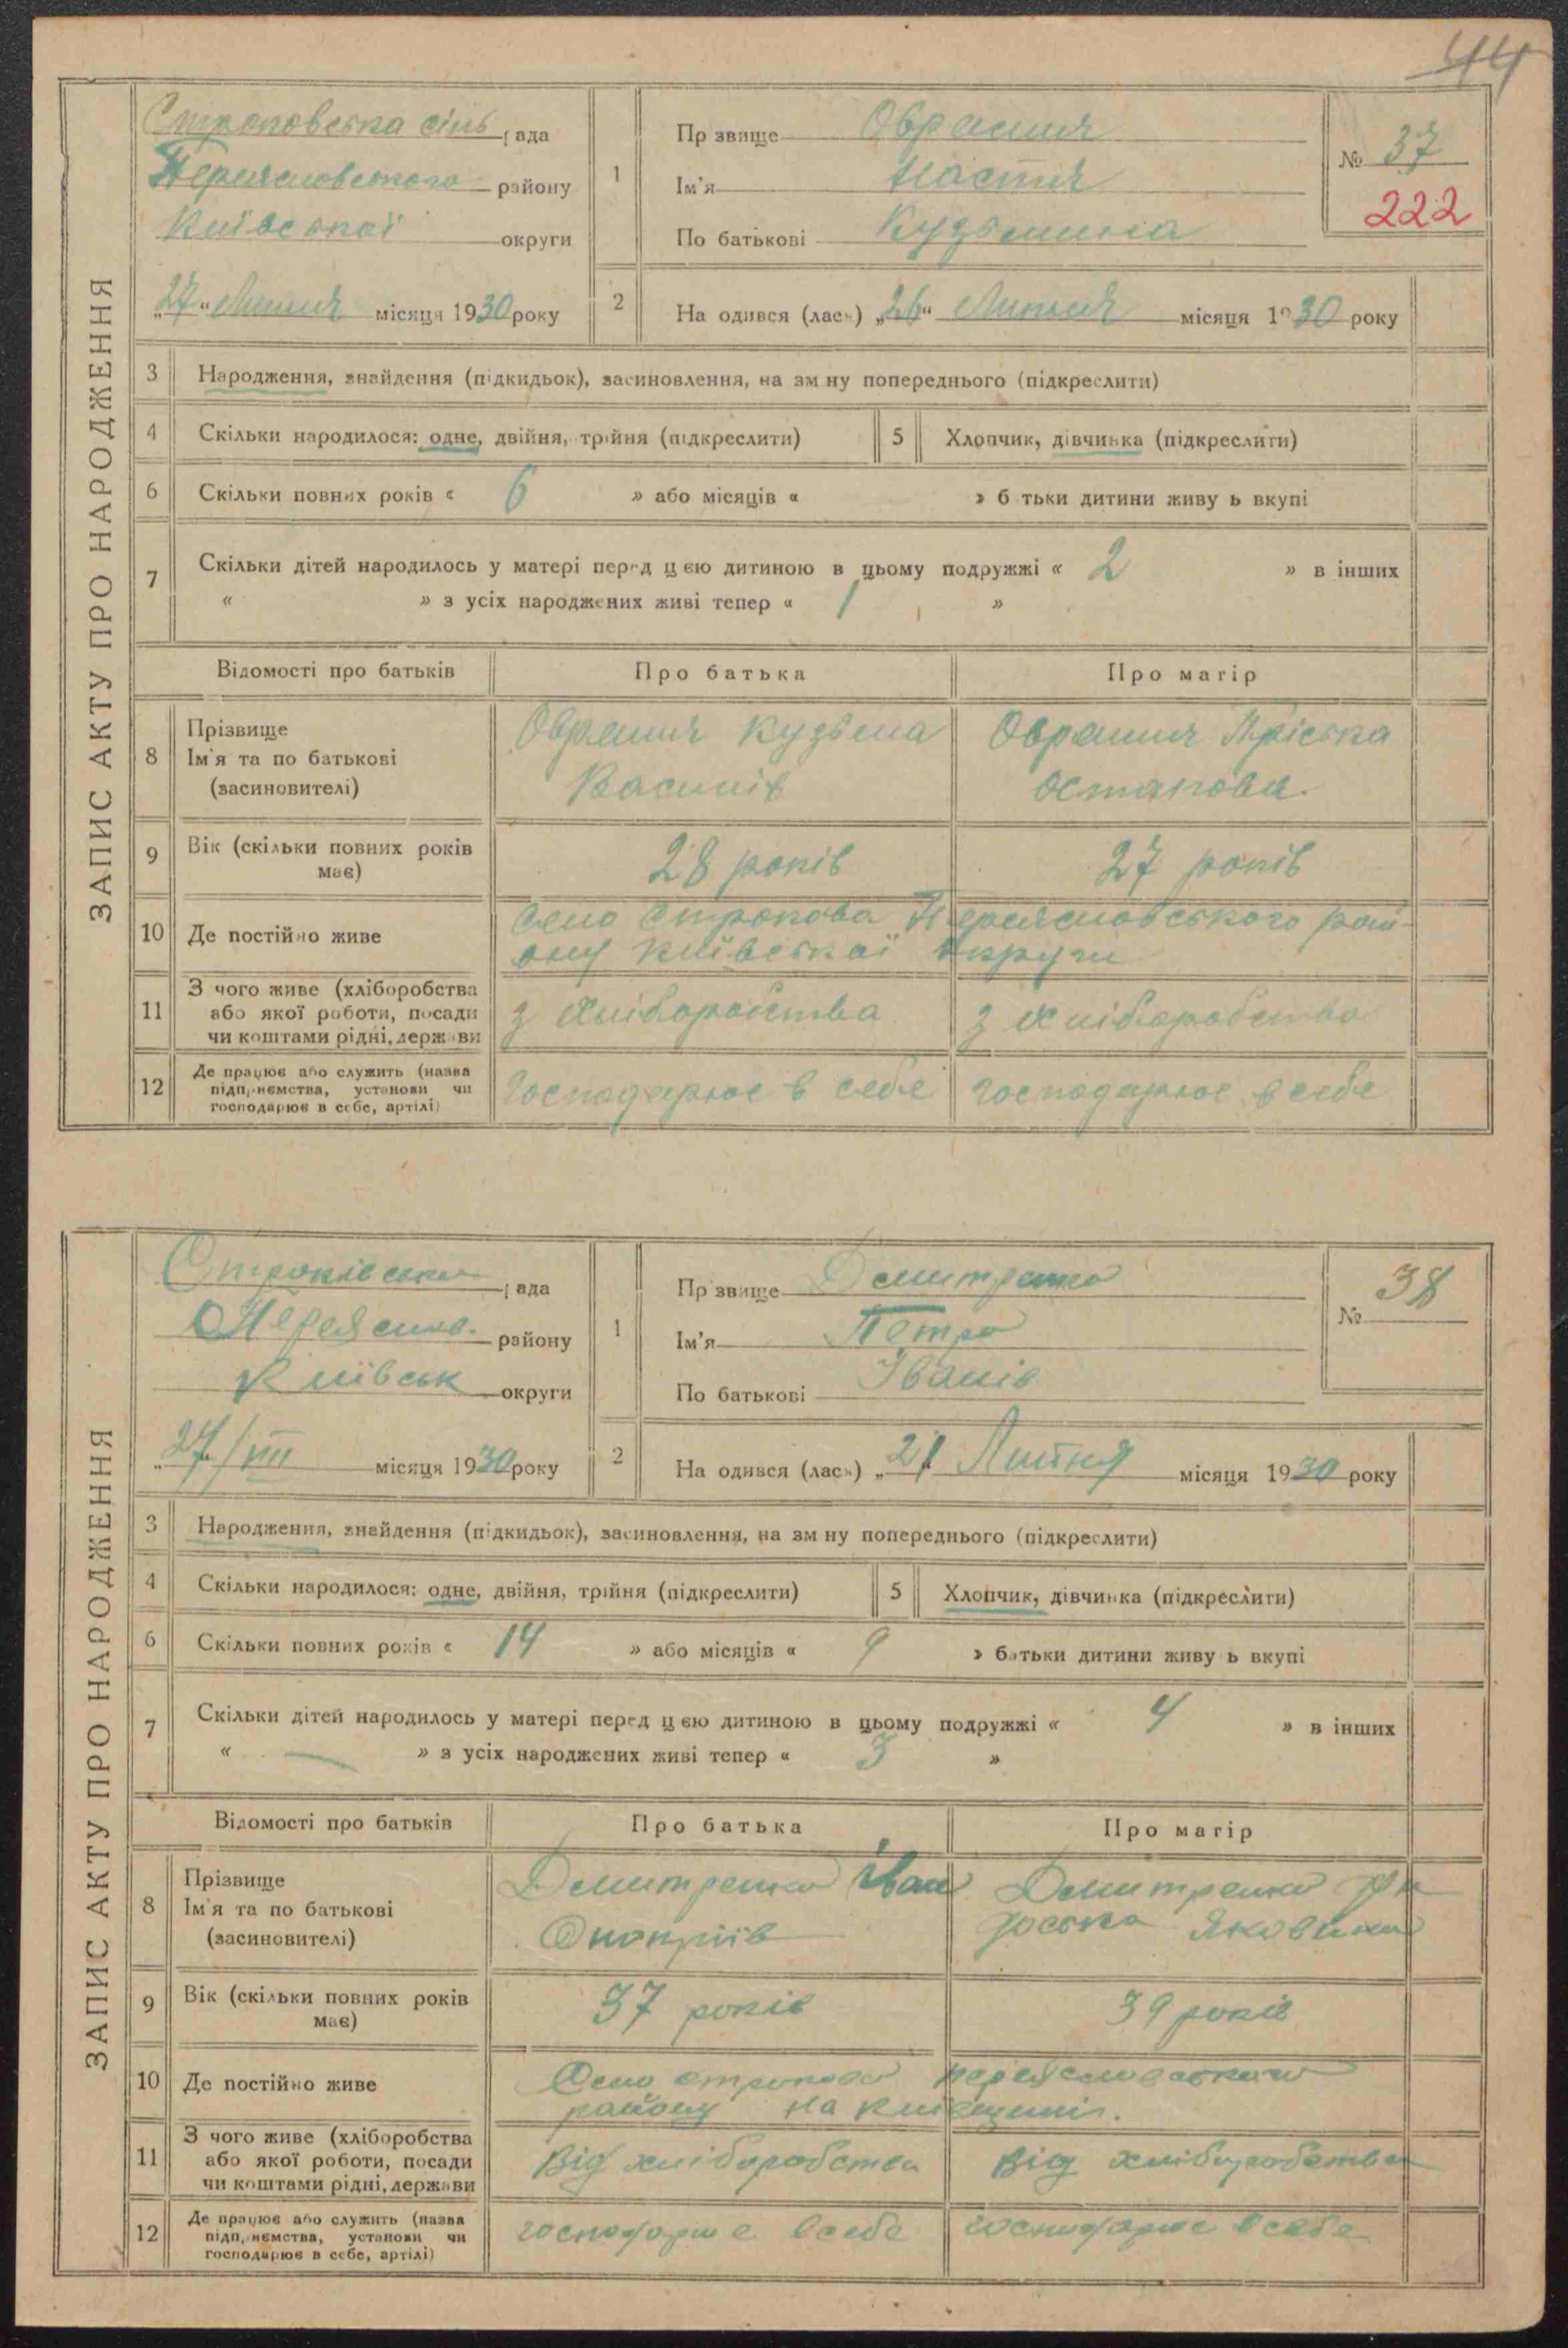 44
ЗАПИС АКТУ ПРО НАРОДЖЕННЯ
Строковська сіль рада
Переяславського району
Київської округи
„27“ Липня місяця 1930 року
1
Прізвище Оврашия
Ім'я Настя
По батькові Кузьмина
№ 37
222
2
Народився (лась) „26“ Липня місяця 1930 року
3 Народження, знайдення (підкидьок), засиновлення, на зміну попереднього (підкреслити)
4 Скільки народилося: одне, двійня, трійня (підкреслити)
5 Хлопчик, дівчинка (підкреслити)
6 Скільки повних років « 6 » або місяців « » батьки дитини живуть вкупі
7 Скільки дітей народилось у матері перед цією дитиною в цьому подружжі « 2 » в інших
« » з усіх народжених живі тепер « 1 »
Відомості про батьків Про батька Про матір
8 Прізвище
Ім'я та по батькові
(засиновителі)
Кузьма
Василів
Пріська
Остапова
9 Вік (скільки повних років має)
28 років
27 років
10 Де постійно живе
Село Строкова Переяславського рай-
ону Київської округи
11 З чого живе (хліборобства
або якої роботи, посади
чи коштами рідні, держави
з хліборобства
з хліборобства
12 Де працює або служить (назва
підприємства, установи чи
господарює в себе, артілі)
Господарює в себе
господарює в себе
ЗАПИС АКТУ ПРО НАРОДЖЕННЯ
Строківська рада
Переяслав. району
Київськ округи
„27/VII місяця 1930 року
1
Прізвище Дмитренко
Ім'я Петро
По батькові Іванів
№ 38
2
Народився (лась) „21 Липня місяця 1930 року
3 Народження, знайдення (підкидьок), засиновлення, на зміну попереднього (підкреслити)
4 Скільки народилося: одне, двійня, трійня (підкреслити)
5 Хлопчик, дівчинка (підкреслити)
6 Скільки повних років « 14 » або місяців « 9 » батьки дитини живуть вкупі
7 Скільки дітей народилось у матері перед цією дитиною в цьому подружжі « 4 » в інших
« — » з усіх народжених живі тепер « 3 »
Відомості про батьків Про батька Про матір
8 Прізвище
Ім'я та по батькові
(засиновителі)
Дмитренко Іван
Онопріїв
Дмитренко
Яковина
9 Вік (скільки повних років має)
37 років
39 років
10 Де постійно живе
Село Строкова Переяславського
району на Київщині.
11 З чого живе (хліборобства
або якої роботи, посади
чи коштами рідні, держави
Від хліборобства
Від хліборобства
12 Де працює або служить (назва
підприємства, установи чи
господарює в себе, артілі)
господарює в себе
господарює в себе